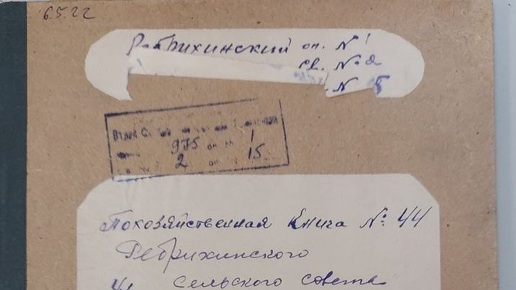 6.5.22
Ребрихинский оп. № 1
св. № 2
№ 5
975 1
2 15
Похозяйственная книга № 44
Ребрихинского
сельского совета